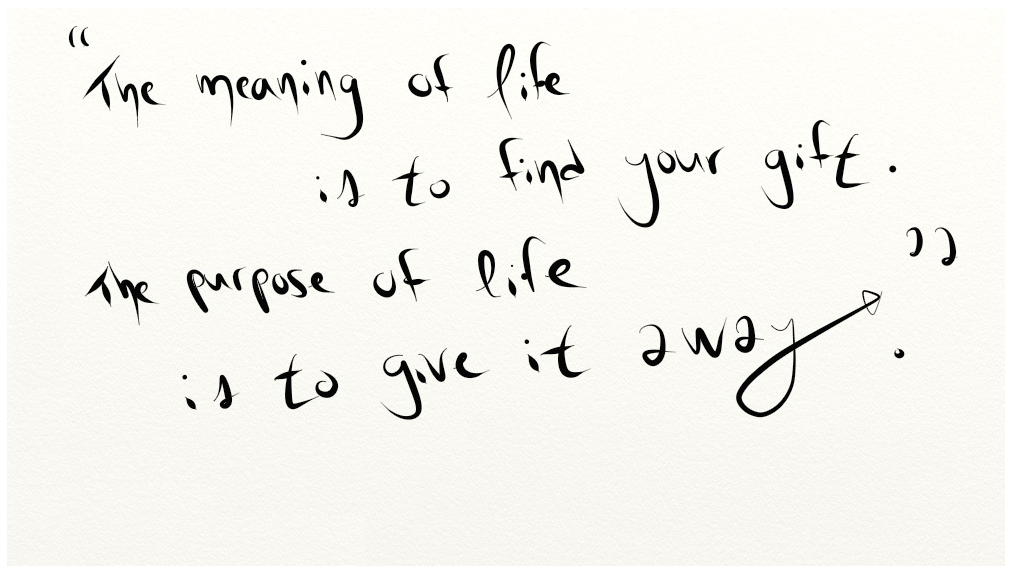 “The meaning of life
is to find your gift.
The purpose of life
is to give it away.”